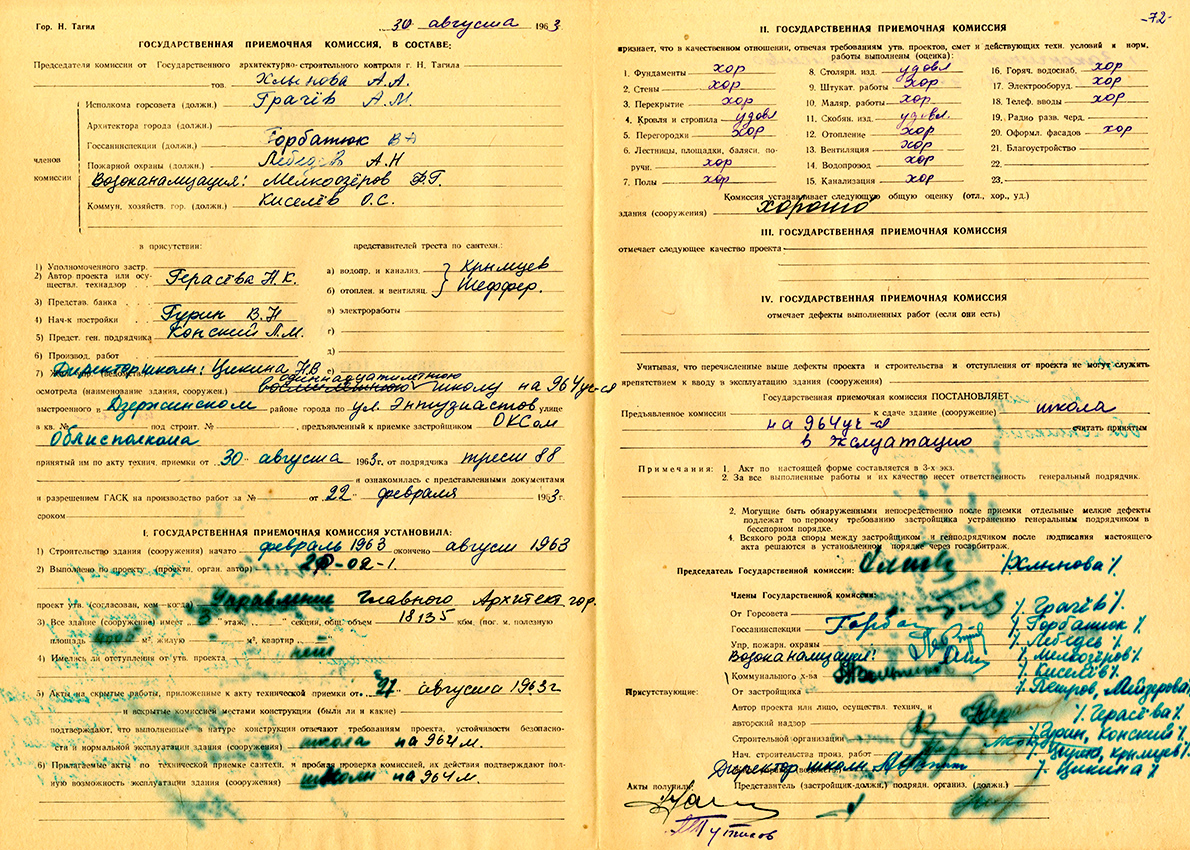 Гор. Н. Тагил
30 августа 1963
ГОСУДАРСТВЕННАЯ ПРИЕМОЧНАЯ КОМИССИЯ, В СОСТАВЕ:
Председатели комиссии от Государственного архитектурно-строительного контроля г. Н. Тагила
тов. Хлынова А.А.
Исполкома горсовета (должн.) Грачёв А.М.
Архитектора города (должн.)
Госсанинспекции (должн.) Горбатюк
членов комиссии
Пожарной охраны (должн.) Лебедев А.Н
Водоканализация: Мелкоозёров Ф.Г.
Коммун, хозяйств. гор. (должн.) Киселёв О.С.
в присутствии:
представителей треста по сантехн.:
1) Уполномоченного застр.
2) Автор проекта или осуществл. технадзор Герасёва Н.К.
3) Представ. банка
4) Нач-к постройки Гурин В.Н
5) Предст. ген. подрядчика Конский Л.М.
6) Производ. работ
а) водопр. и канализ. Крымцев
б) отоплен. и вентиляц. Шеффер.
в) электроработы
г)
д)
7) Директор школы: Цикина Н.В
е)
одиннадцатилетнюю
осмотрела (наименование здания, сооружен.) восьмилетнюю школу на 964 уч-ся
выстроенного в Дзержинском районе города по ул Энтузиастов улице
в кв. № под строит. № , предъявленного к приемке застройщиком ОКСом
Облисполкома
принятый им по акту технич. приемки от 30 " августа 1963г. от подрядчика трест 88
и ознакомилась с представленными документами
и разрешением ГАСК на производство работ за № от 22 " февраля 1963г.
сроком
I. ГОСУДАРСТВЕННАЯ ПРИЕМОЧНАЯ КОМИССИЯ УСТАНОВИЛА:
1) Строительство здания (сооружения) начато февраль 1963 окончено август 1963
2) Выполнено по проекту (проектн. орган. автор) -02-1.
проект утв. (согласован, кем—когда) Управление Главного Архитект. гор.
3) Все здание (сооружение) имеет 3 этаж, секций, общ. объем 18135 кбм. (пог. м. полезную
площадь м², жилую м², квартир
4) Имелись ли отступления от утв. проекта нет
5) Акты на скрытые работы, приложенные к акту технической приемки от 27 августа 1963г
и вскрытые комиссией местами конструкции (были ли и какие)
подтверждают, что выполненные в натуре конструкции отвечают требованиям проекта, устойчивости безопасно-
сти и нормальной эксплуатации здания (сооружения) школа на 964 м.
6) Прилагаемые акты по технической приемке сантехн, и пробная проверка комиссией, их действия подтверждают пол-
ную возможность эксплуатации здания (сооружения) школы на 964 м.
-72-
II. ГОСУДАРСТВЕННАЯ ПРИЕМОЧНАЯ КОМИССИЯ
признает, что в качественном отношении, отвечая требованиям утв. проектов, смет и действующих техн. условий и норм,
работы выполнены (оценка):
1. Фундаменты хор
2. Стены хор
3. Перекрытие хор
4. Кровля и стропила удовл
5. Перегородки хор
6. Лестницы, площадки, балясн. по-
ручи. хор
7. Полы хор
8. Столярн. изд. удовл
9. Штукат. работы хор
10. Маляр. работы хор
11. Скобян. изд. удовл.
12. Отопление хор
13. Вентиляция хор
14. Водопровод хор
15. Канализация хор
16. Горяч. водоснаб. хор
17. Электрооборуд. хор
18. Телеф. вводы хор
19. Радио разв. черд.
20. Оформл. фасадов хор
21. Благоустройство
22.
23.
Комиссия устанавливает следующую общую оценку (отл., хор., уд.)
здания (сооружения) хорошо
III. ГОСУДАРСТВЕННАЯ ПРИЕМОЧНАЯ КОМИССИЯ
отмечает следующее качество проекта
IV. ГОСУДАРСТВЕННАЯ ПРИЕМОЧНАЯ КОМИССИЯ
отмечает дефекты выполненных работ (если они есть)
Учитывая, что перечисленные выше дефекты проекта и строительства и отступления от проекта не могут служить
препятствием к вводу в эксплуатацию здания (сооружения)
Государственная приемочная комиссия ПОСТАНОВЛЯЕТ
Предъявленное комиссии к сдаче здание (сооружение) школа
на 964 уч-ся считать принятым
в эксплуатацию
Примечания: 1. Акт по настоящей форме составляется в 3-х экз.
2. За все выполненные работы и их качество несет ответственность генеральный подрядчик.
2. Могущие быть обнаруженными непосредственно после приемки отдельные мелкие дефекты
подлежат по первому требованию застройщика устранению генеральным подрядчиком в
бесспорном порядке.
4. Всякого рода споры между застройщиком и генподрядчиком после подписания настоящего
акта решаются в установленном порядке через госарбитраж.
Председатель Государственной комиссии: /Хлынова/.
Члены Государственной комиссии:
От Горсовета /. Грачёв/.
Госсанинспекции Горбат /. Горбатюк /.
Упр. пожарн. охраны /. Лебедев /.
Водоканализация: /. Мелкозёров/.
Коммунального х-ва /. Киселёв/.
Присутствующие:
От застройщика /. Петров,
Автор проекта или лицо, осуществл. технич. и
авторский надзор /. Герасёва/.
Строительной организации /. Гурин, Конский/.
Нач. строительства произ. работ Крымцев/.
Директор школы. /. Цикина /.
Акты получили:
Представитель (застройщик-должн.) подрядн. организ. (должн.)